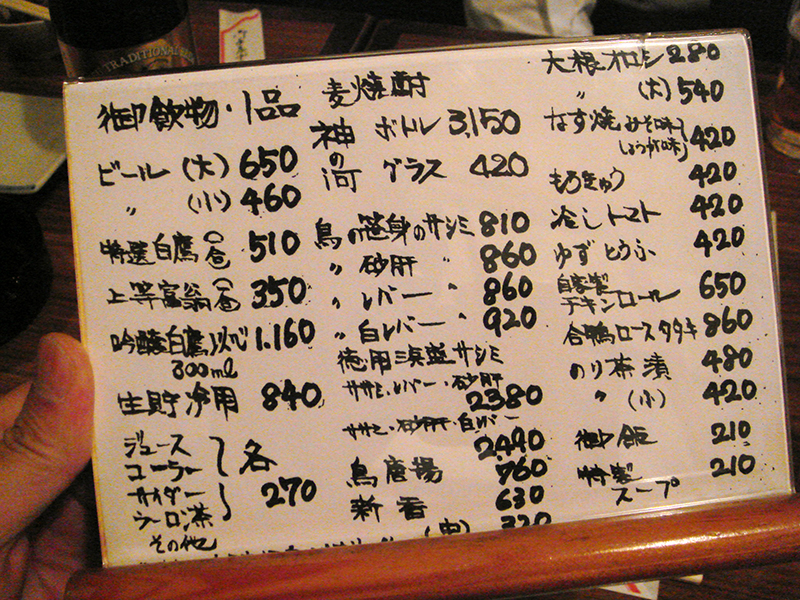 TRADITIONAL
御飲物・1品
ビール (大) 650
〃 (小) 460
特選白鷹 510
上等富翁 350
吟醸白鷹 1.160
300ml
生貯冷用 840
ジュース
コーラー
サイダー
ウーロン茶
各 270
その他
麦焼酎
神の河
ボトル 3,150
グラス 420
鳥の笹身のサシミ 810
〃 砂肝 〃 860
〃 レバー 〃 860
〃 白レバー 〃 920
徳用三点盛サシミ
ササミ・レバー・砂肝
2380
ササミ・砂肝・白レバー
2440
鳥唐揚 760
新香 630
(中) 320
大根オロシ 280
〃 (大) 540
なす焼 みそ味
しょうが味 420
もろきゅう 420
冷しトマト 420
ゆずとうふ 420
自家製
チキンロール 650
合鴨ロースタタキ 860
のり茶漬 480
〃 (小) 420
御飯 210
特製
スープ 210